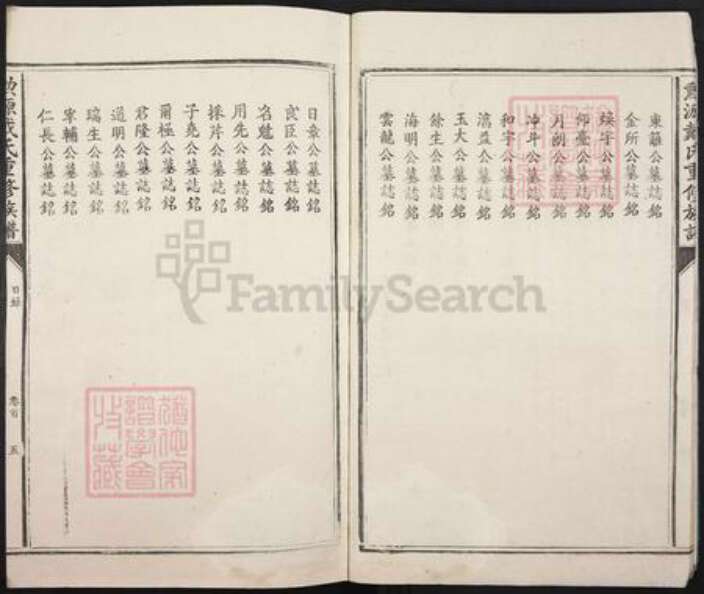 東籬公墓誌銘
金所公墓誌銘
公墓誌銘
師臺公墓誌銘
月朗公墓誌銘
冲斗公墓誌銘
和宇公墓誌銘
公墓誌銘
玉大公墓誌銘
餘生公墓誌銘
海明公墓誌銘
雲龍公墓誌銘
日章公墓誌銘
良臣公墓誌銘
名魁公墓誌銘
用先公墓誌銘
採芹公墓誌銘
子堯公墓誌銘
爾極公墓誌銘
君隆公墓誌銘
道明公墓誌銘
瑞生公墓誌銘
宰輔公墓誌銘
仁長公墓誌銘
源戴氏重修族譜
目錄
卷首
五
FamilySearch